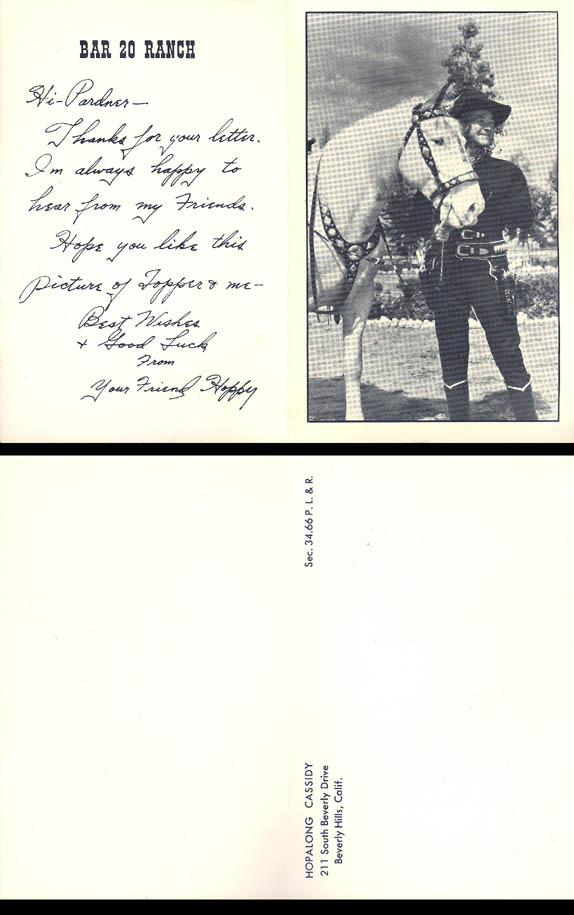 BAR 20 RANCH
Hi-Pardner—
Thanks for your letter.
I'm always happy to
hear from my Friends.
Hope you like this
picture of Topper & me—
Best Wishes
& Good Luck
From
Your Friend Hoppy
Sec. 34.66 P. L. & R.
HOPALONG CASSIDY
211 South Beverly Drive
Beverly Hills, Calif.